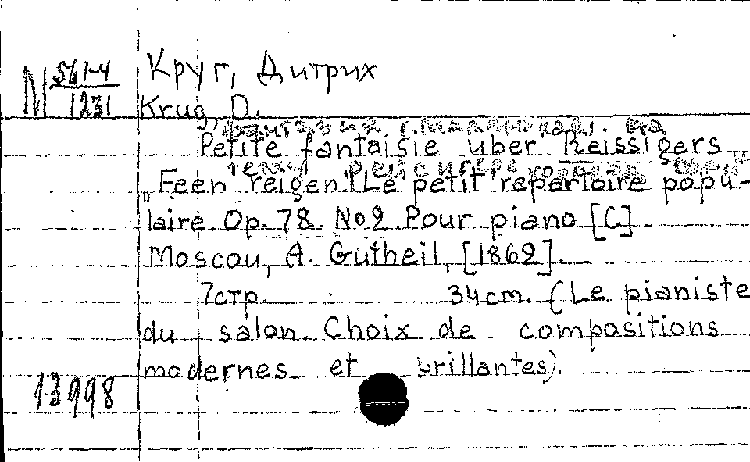 М 561-4
1231
Круг, Дитрих
Krug, D.
Petite fantaisie uber Reissigers
"Feen reigen". (Le petit repertoire popu-
laire Op. 78. No 2 Pour piano [C]
Moscou, A. Gutheil, [1862].
7стр. 34 cm. (Le pianiste
du salon. Choix de compositions
modernes et brillantes).
13998